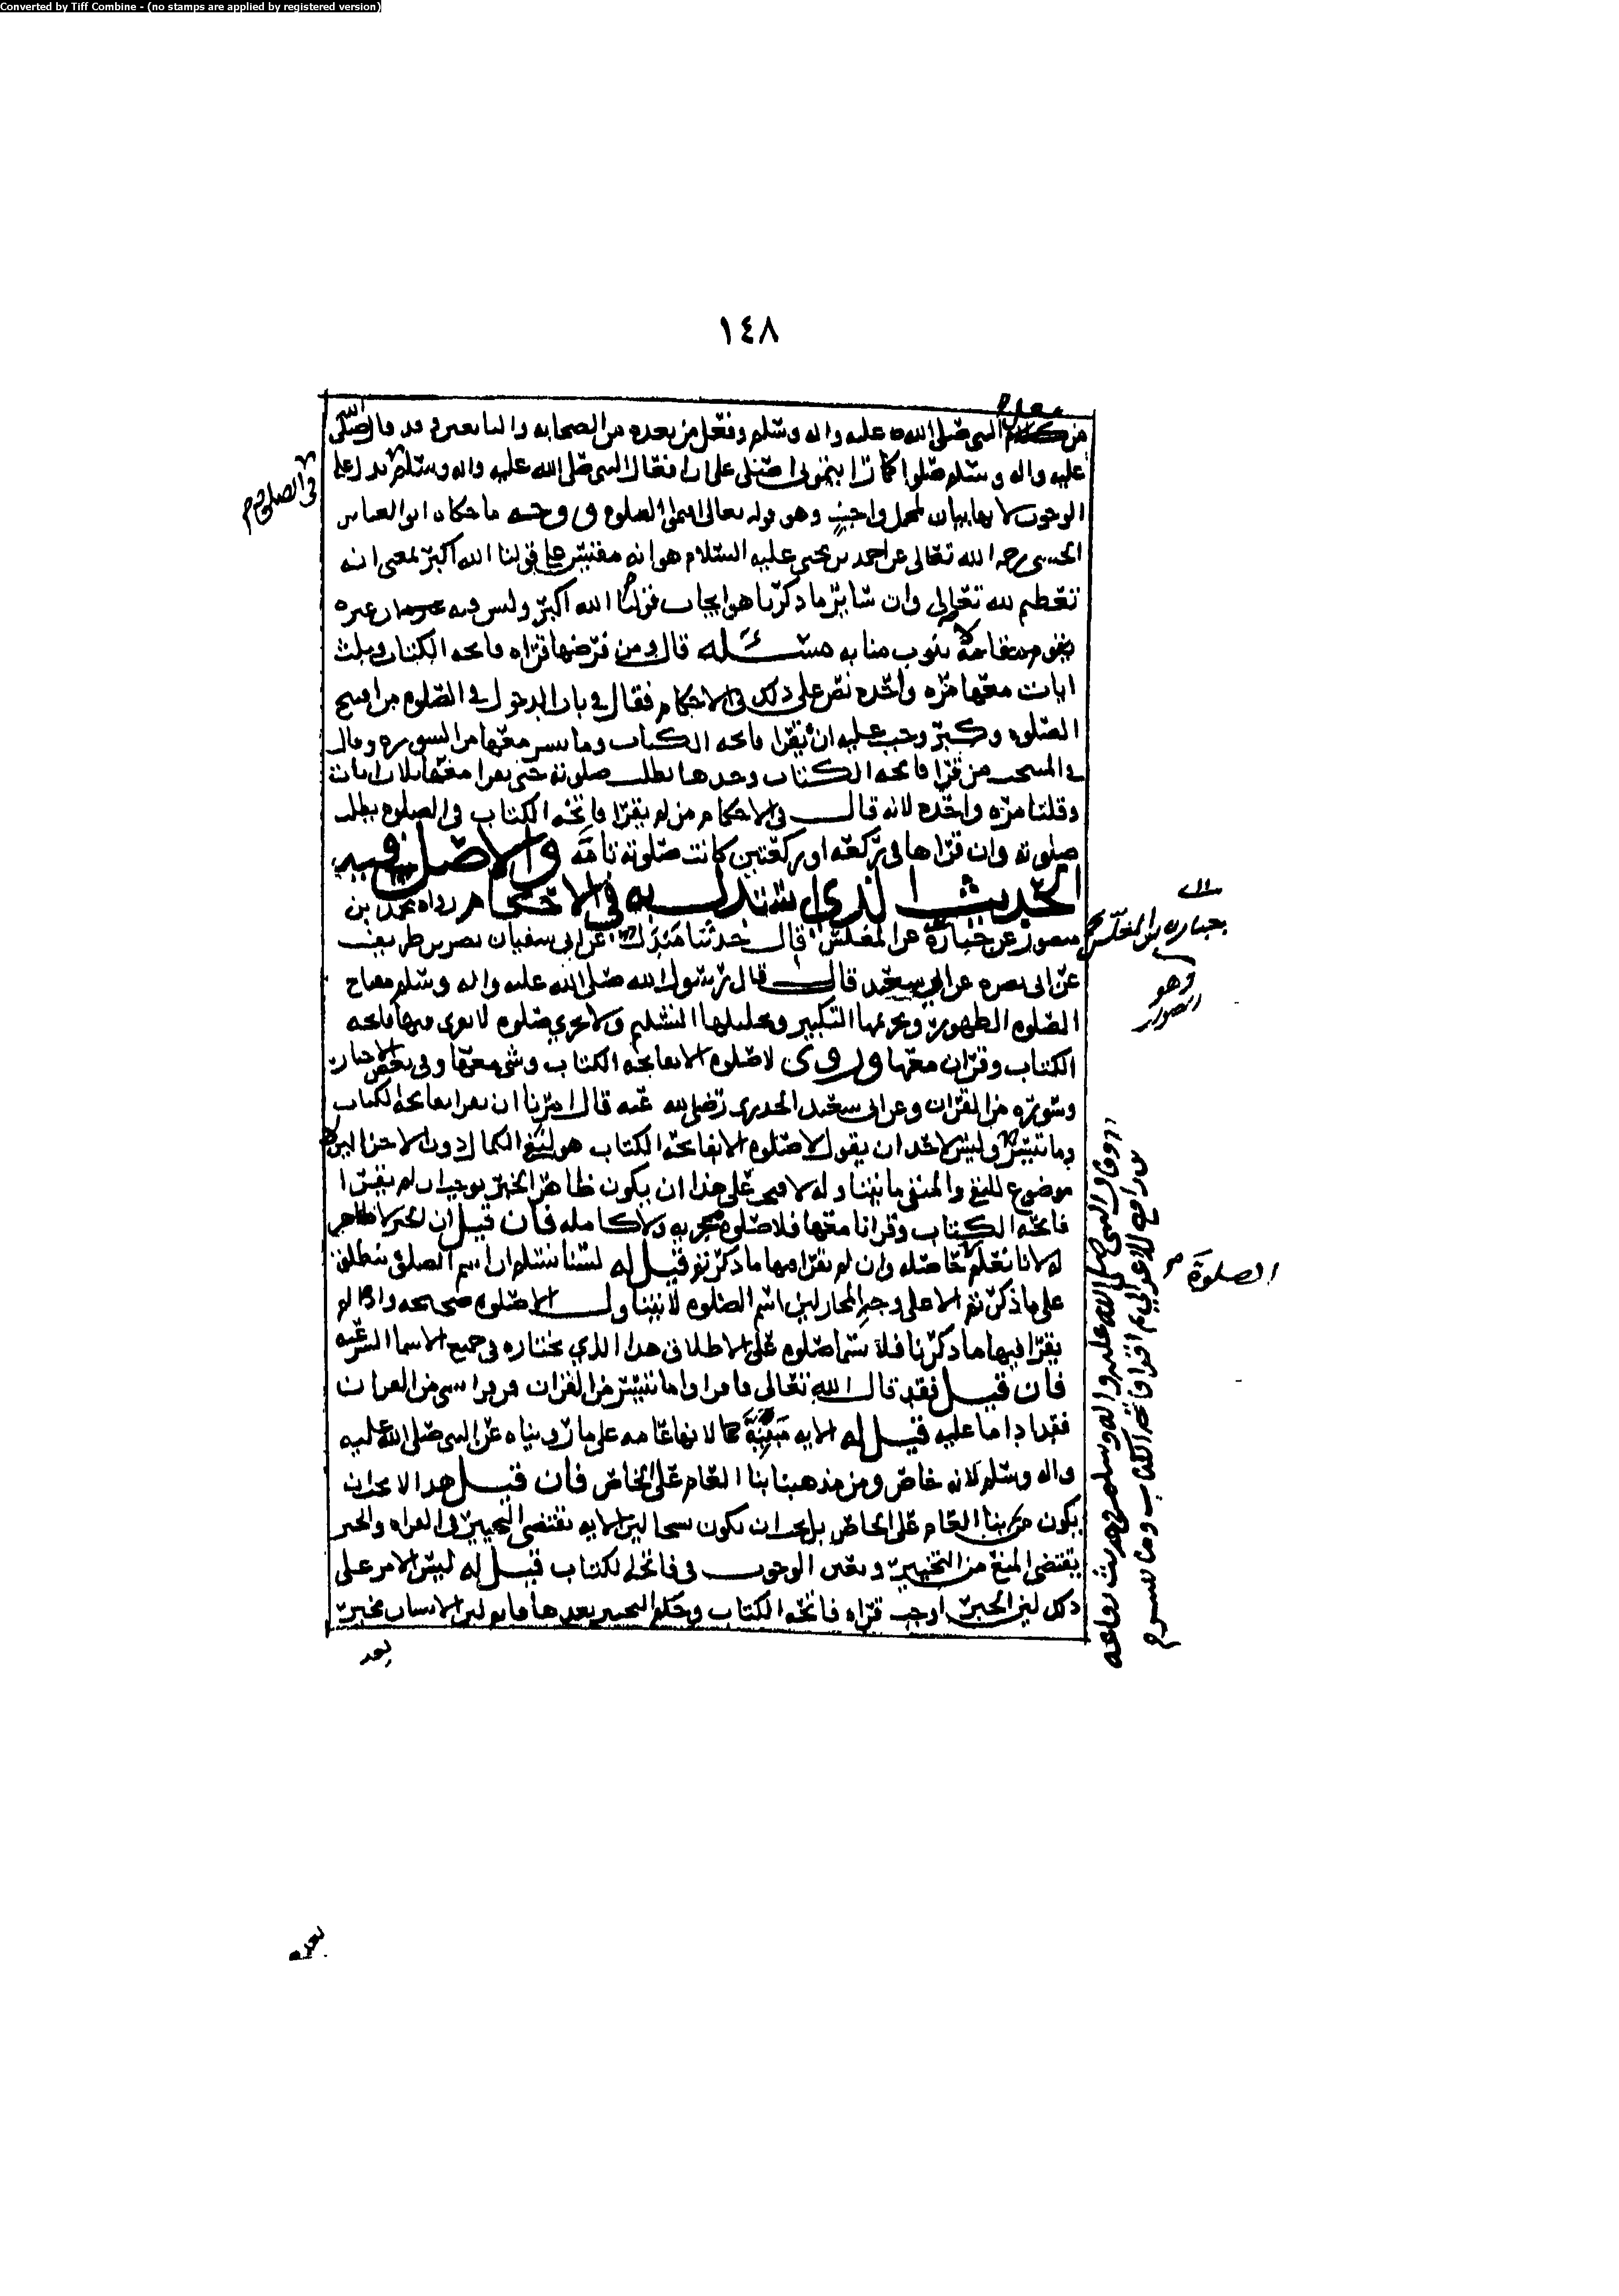 Converted by Tiff Combine - (no stamps are applied by registered version)
١٤٨
من النبي صلى الله عليه واله وسلم وفعل من بعده من الصحابه والتابعين وقد قال صلى الله
عليه واله وسلم صلوا كما رايتموني اصلي على ان افعال النبي صلى الله عليه واله وسلم تدل على
في الصلوة
الوجوب لانها بيان لمجمل واجب وهو قوله تعالى اقيموا الصلوه ووجه ما حكاه ابو العباس
الحسني رحمه الله تعالى عن احمد بن يحيى عليه السلام هو انه على قولنا الله اكبر بمعنى انه
تعظيم لله تعالى وان سائر ما ذكرنا هو ايجاب قولنا الله اكبر وليس فيه ان غيره
يقوم مقامه ينوب منابه مسئله قال ومن فرضها قراه فاتحه الكتاب وثلث
ايات معها مره واحده نص على ذلك في الاحكام فقال في باب الدخول في الصلوه من افتتح
الصلوه وكبر وجب عليه ان يقرا فاتحه الكتاب وما تيسر معها من السور وقال
في المنتخب من قرا فاتحه الكتاب وحدها بطلت صلوته حتى يقرا معها ثلاث ايات
وقلنا مره واحده لانه قال في الاحكام من لم يقرا فاتحه الكتاب في الصلوه بطلت
صلوته وان قراها في ركعه او ركعتين كانت صلوته تامه والاصل فيه
الحديث الذي استدل به في الاحكام رواه محمد بن
منصور عن جباره عن المغلس قال حدثنا مندل عن ابي سفيان
جباره بن المغلس
وهو
الصواب
عن ابي نضره عن ابي سعيد قال قال رسول الله صلى الله عليه واله وسلم مفتاح
الصلوه الطهور وتحريمها التكبير وتحليلها التسليم ولا تجزي صلوه لا يقرى فيها فاتحه
الكتاب وقران معها وروى لا صلوه الا بفاتحه الكتاب وشي معها وفي بعض الاخبار
وسوره من القران وعن ابي سعيد الخدري رضي الله عنه قال امرنا ان نقرا بفاتحه الكتاب
وما تيسر وليس لاحد ان يقول لا صلوه الا بفاتحه الكتاب هو لنفي الكمال دون الاجزا لان لا
موضوع للنفي والمنفي ما يتناوله لا على هذا ان يكون ظاهر الخبر يوجب ان لم يقرا
فاتحه الكتاب وقرانا معها فلا صلوه مجزيه ولا كامله فان قيل ان الخبر لا ظاهر
له لانا نعلم حاصله وان لم يقرا فيها ما ذكرتم قيل له لسنا نسلم ان اسم الصلوة ينطلق
الصلوة
على ما ذكرتم الا على وجه المجاز لان اسم الصلوه لا يتناول الا صلوه صحيحه واذا لم
يقرا فيها ما ذكرنا فلا صلوه على الاطلاق هذا الذي نختاره في جميع الاسما الشرعيه
فان قيل فقد قال الله تعالى فاقرؤا ما تيسر من القران ومن قرا شي من القران
فقد ادا ما عليه قيل له الايه مبنيه لانها عامه على ما رويناه عن النبي صلى الله عليه
واله وسلم لانه خاص ومن مذهبنا بنا العام على الخاص فان قيل هذا لا يجب ان
يكون من بنا العام على الخاص بل يجب ان يكون نسخا لان الايه تقتضي التخيير في القراه والخبر
يقتضي المنع من التخيير وتعين الوجوب في فاتحه الكتاب قيل له ليس الامر على
ذلك لان الخبر اوجب قراه فاتحه الكتاب وحكم التخيير بعدها قايم لان الانسان مخير
بعد
وقال النبي صلى الله عليه واله وسلم في حديث رفاعه
بن رافع للاعرابي ثم اقرا فاتحه الكتاب وما تيسر
بعده